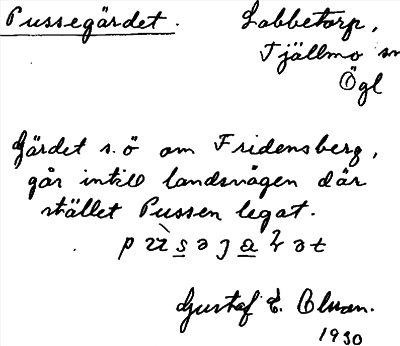 Pussegärdet.
Lobbetorp,
Tjällmo sn
Ögl
Gärdet s.ö om Fridensberg,
går intill landsvägen där
stället Pussen legat.
Gustaf E. Olsson.
1930